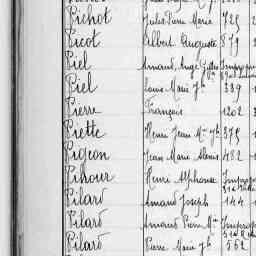 Pichot Jules Pierre Marie 729
Picot Albert Auguste 879
Piel Amand Ange
Piel Louis Marie Jh 389
Pierre Français 1202
Piette Henri Jean Mie Jh 375
Pigeon Jean Marie Alexis 482
Pihour Henri Alphonse
Pilard Amand Joseph 144
Pilard Amand Pierre Mie
Pilard Pierre Marie Jh 562